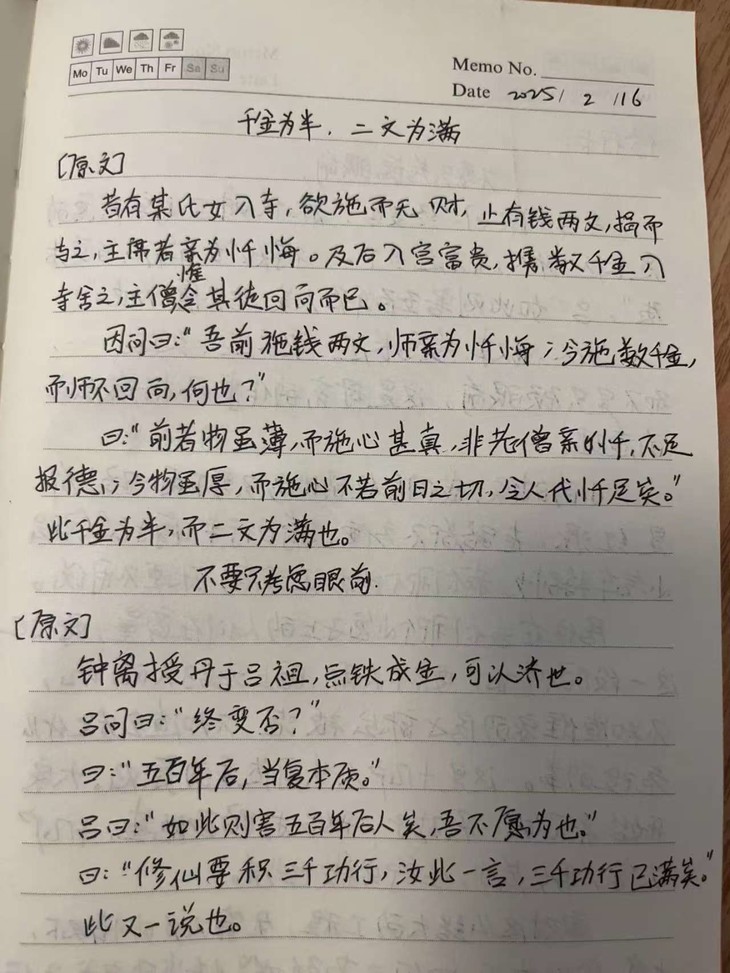 Mo Tu We Th Fr Sa Su
Memo No.
Date 2025/ 2 /16
千金为半,二文为满
[原文]
昔有某氏女入寺,欲施而无财,止有钱两文,捐而
与之,主席者亲为忏悔。及后入宫富贵,携数千金入
寺舍之,主僧惟令其徒回向而已。
因问曰:“吾前施钱两文,师亲为忏悔;今施数千金,
而师不回向,何也?”
曰:“前者物虽薄,而施心甚真,非老僧亲忏,不足
报德;今物虽厚,而施心不若前日之切,令人代忏足矣。”
此千金为半,而二文为满也。
不要只考虑眼前.
[原文]
钟离授丹于吕祖,点铁成金,可以济世。
吕问曰:“终变否?”
曰:“五百年后,当复本质。”
吕曰:“如此则害五百年后人矣,吾不愿为也。”
曰:“修仙要积三千功行,汝此一言,三千功行已满矣。”
此又一说也。